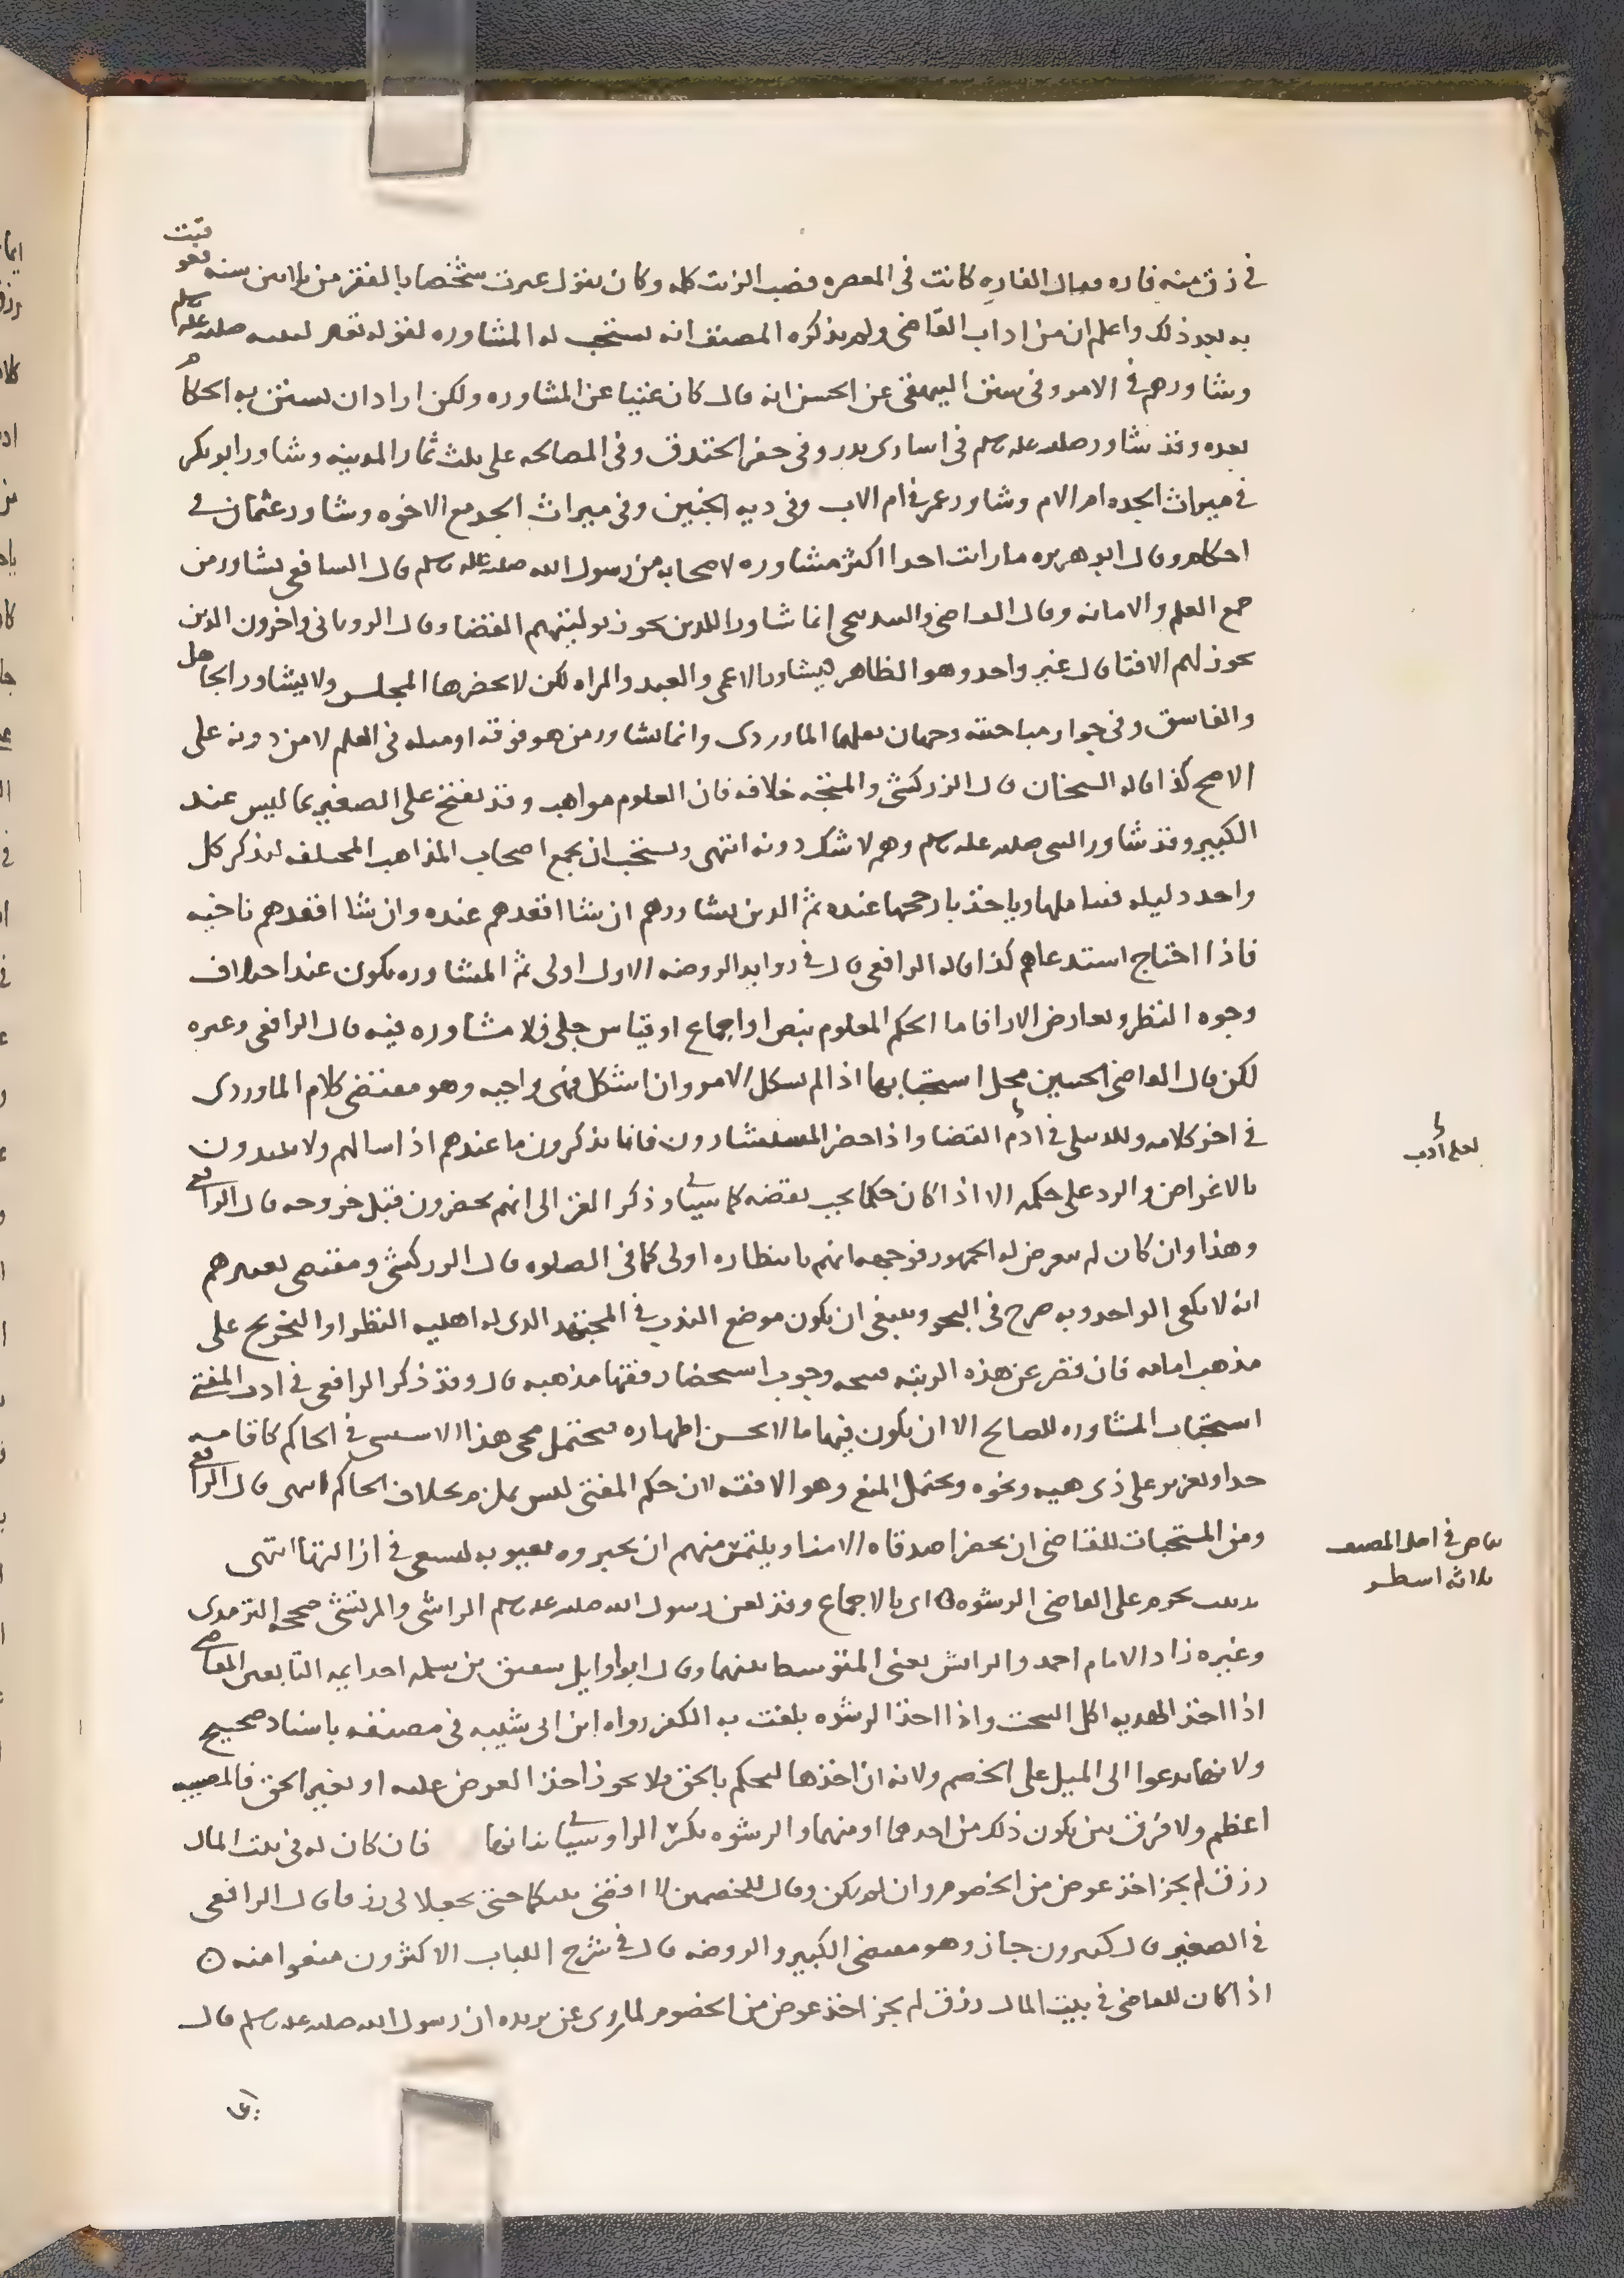 في زق منه فاره فقال الفاره كانت في المعصره فصب الزيت كله وكان يقول عيرت شخصا بالفقر من ثلاثين سنه فعوقبت
به بعد ذلك واعلم ان من اداب القاضي ولم يذكره المصنف انه يستحب له المشاوره لقوله تعالى لنبيه صلى الله عليه وسلم
وشاورهم في الامر وفي سنن البيهقي عن الحسن انه قال كان غنيا عن المشاوره ولكن اراد ان يستن به الحكام
بعده وقد شاور صلى الله عليه وسلم في اسارى بدر وفي حفر الخندق وفي المصالحه على ثلث ثمار المدينه وشاور ابو بكر
في ميراث الجده ام الام وشاور عمر في ام الاب وفي ديه الجنين وفي ميراث الجد مع الاخوه وشاور عثمان في
احكام وقال ابو هريره ما رايت احدا اكثر مشاوره لاصحابه من رسول الله صلى الله عليه وسلم قال الشافعي يشاور من
جمع العلم والامانه وقال القاضي والبندنيجي انما شاور الذين يجوز توليتهم القضا وقال الروياني واخرون الذين
يجوز لهم الافتا قال غير واحد وهو الظاهر فيشاور الاعمى والعبد والمراه لكن لا يحضرها المجلس ولا يشاور الجاهل
والفاسق وفي جواز مباحثته وجهان نقلهما الماوردي وانما يشاور من هو فوقه او مثله في العلم لا من دونه على
الاصح كذا قاله الشيخان قال الزركشي والمتجه خلافه فان العلوم مواهب وقد يفتح على الصغير بما ليس عند
الكبير وقد شاور النبي صلى الله عليه وسلم وهم لا شك دونه انتهى ويستحب ان يجمع اصحاب المذاهب المختلفه ليذكر كل
واحد دليله فيتاملها وياخذ بارجحها عنده ثم الذين يشاورهم ان شا اقعدهم عنده وان شا اقعدهم ناحيه
فاذا احتاج استدعاهم كذا قاله الرافعي قال في زوايد الروضه الاول اولى ثم المشاوره يكون عند اختلاف
وجوه النظر وتعارض الارا فاما الحكم المعلوم بنص او اجماع او قياس جلي فلا مشاوره فيه قال الرافعي وغيره
لكن قال القاضي الحسين محل استحبابها اذا لم يشكل الامر وان اشكل فهي واجبه وهو مقتضى كلام الماوردي
في اخر كلامه في ادم القضا واذا حضر المستشارون فانما يذكرون ما عندهم اذا سالهم ولا يبتدون
بالاعتراض والرد على حكمه الا اذا كان حكما يجب نقضه كما سياتي وذكر الغزالي انهم يحضرون قبل خروجه قال الرافعي
وهذا وان كان لم يتعرض له الجمهور فوجهه انهم بانتظاره اولى كما في الصلوه قال الزركشي ومقتضى تعبيرهم
انه لا يكفي الواحد وبه صرح في البحر وينبغي ان يكون موضع الندب في المجتهد الذي له اهليه النظر او التخريج على
مذهب امامه فان قصر عن هذه الرتبه فيتجه وجوب استحضار فقها مذهبه قال وقد ذكر الرافعي في ادب المفتي
استحباب المشاوره للصالح الا ان يكون فيها ما لا يحسن اظهاره فيحتمل مجي هذا الاستثنى في الحاكم كاقامه
حد او تعزير على ذي هيبه ونحوه ويحتمل المنع وهو الافقه لان حكم المفتي ليس بملزم بخلاف الحاكم انتهى قال الرافعي
ومن المستحبات للقاضي ان يحضر اصدقاه الامنا ويلتمس منهم ان يخبروه بعيوبه ليسعى في ازالتها انتهى
يحرم على القاضي الرشوه ای بالاجماع وقد لعن رسول الله صلى الله عليه وسلم الراشي والمرتشي صححه الترمذي
وغيره زاد الامام احمد والرايش يعني المتوسط بينهما وقال ابو اوايل شقيق بن سلمه احد ايمه التابعين القاضي
اذا اخذ الهديه اكل السحت واذا اخذ الرشوه بلغت به الكفر رواه ابن ابي شيبه في مصنفه باسناد صحيح
ولانها تدعوا الى الميل على الخصم ولانه ان اخذها ليحكم بالحق فلا يجوز اخذ العوض عليه او لغير الحق فالمصيبه
اعظم ولا فرق بين يكون ذلك من احدهما او منهما والرشوه بكسر الرا وسياتي بدانها فان كان له في بيت المال
رزق لم يجز اخذ عوض من الخصوم وان لم يكن وقال للخصمين لا اقضي بينكما حتى تجعلا لي رزقا قال الرافعي
في الصغير قال كثيرون جاز وهو مقتضى الكبير والروضه قال في شرح اللباب الاكثرون منعوا منه
اذا كان للقاضي في بيت المال رزق لم يجز اخذ عوض من الخصوم لما روى عن بريده ان رسول الله صلى الله عليه وسلم قال
لعله ادب
بياض في اصل المصنف
ثلاثه اسطر